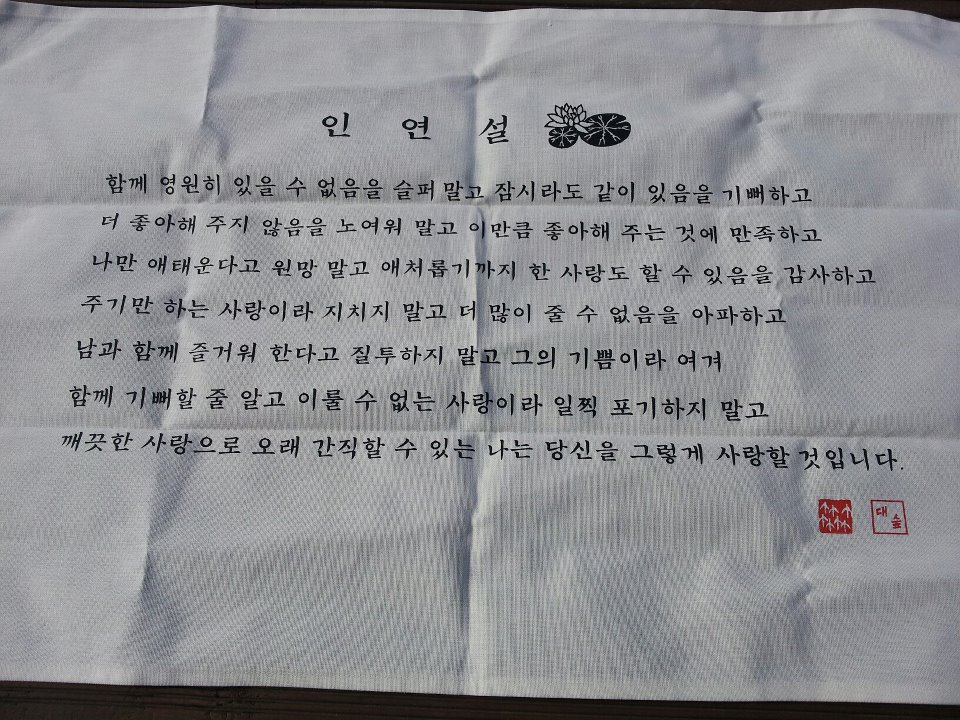 인 연 설
함께 영원히 있을 수 없음을 슬퍼 말고 잠시라도 같이 있음을 기뻐하고
더 좋아해 주지 않음을 노여워 말고 이만큼 좋아해 주는 것에 만족하고
나만 애태운다고 원망 말고 애처롭기까지 한 사랑도 할 수 있음을 감사하고
주기만 하는 사랑이라 지치지 말고 더 많이 줄 수 없음을 아파하고
남과 함께 즐거워 한다고 질투하지 말고 그의 기쁨이라 여겨
함께 기뻐할 줄 알고 이룰 수 없는 사랑이라 일찍 포기하지 말고
깨끗한 사랑으로 오래 간직할 수 있는 나는 당신을 그렇게 사랑할 것입니다.
대숲